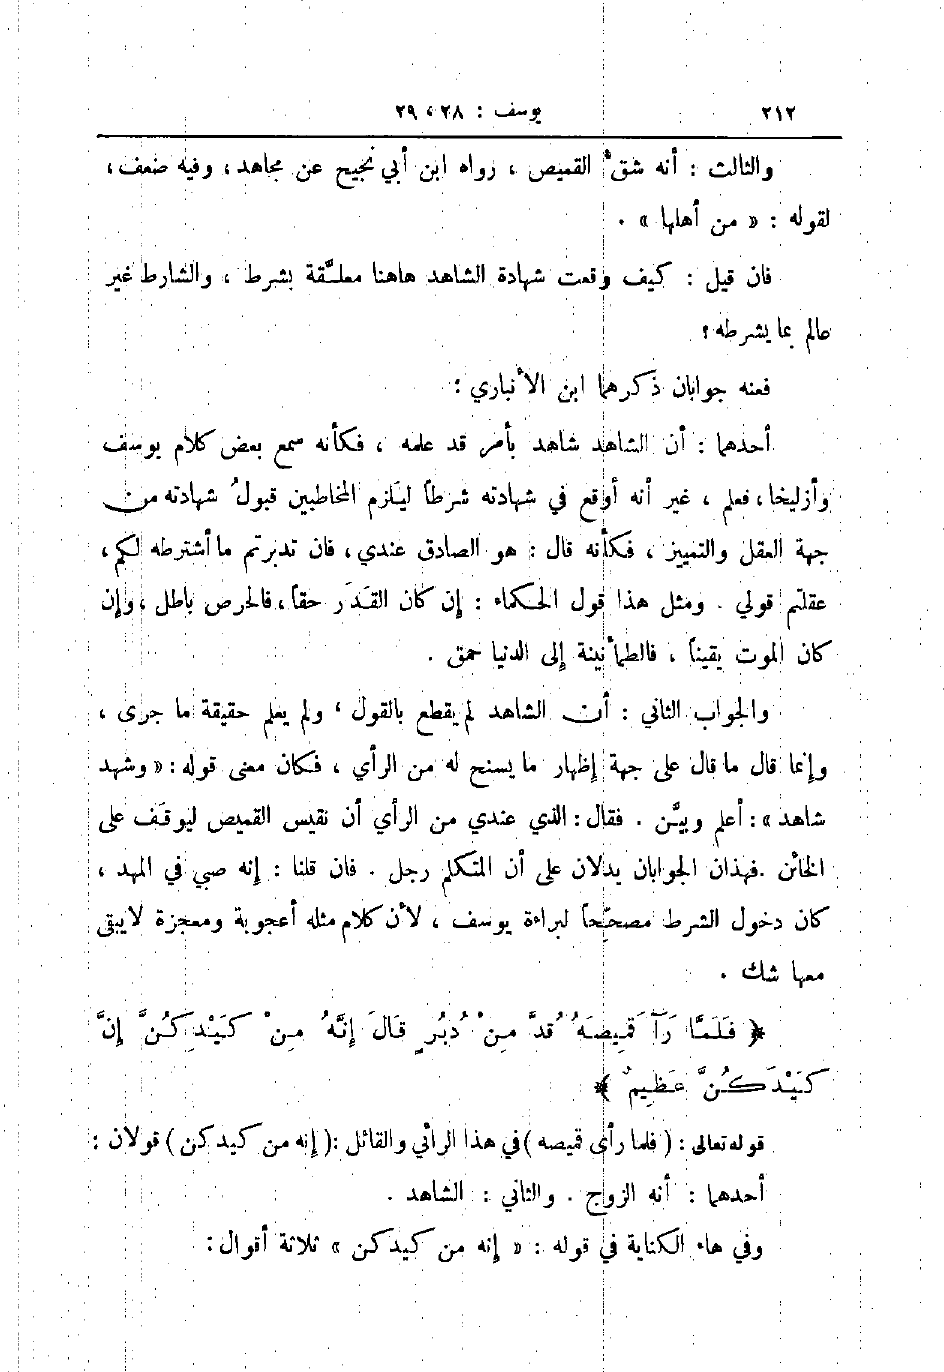 ٢١٢ يوسف : ٢٨ ، ٢٩
والثالث : أنه شقُّ القميص ، رواه ابن أبي نجيح عن مجاهد ، وفيه ضعف ،
لقوله : « من أهلها » .
فان قيل : كيف وقعت شهادة الشاهد هاهنا معلَّقة بشرط ، والشارط غير
عالم بما يشرطه ؟
فعنه جوابان ذكرهما ابن الأنباري :
أحدهما : أن الشاهد شاهد بأمر قد علمه ، فكأنه سمع بعض كلام يوسف
وأزليخا ، فعلم ، غير أنه أوقع في شهادته شرطاً ليَلزم المخاطبين قبولُ شهادته من
جهة العقل والتمييز ، فكأنه قال : هو الصادق عندي ، فان تدبرتم ما أشترطه لكم ،
عقلتم قولي . ومثل هذا قول الحكماء : إن كان القَدَر حقاً ، فالحرص باطل ، وإن
كان الموت يقيناً ، فالطمأنينة إلى الدنيا حمق .
والجواب الثاني : أن الشاهد لم يقطع بالقول ، ولم يعلم حقيقة ما جرى ،
وإنما قال ما قال على جهة إظهار ما يسنح له من الرأي ، فكان معنى قوله : « وشهد
شاهد » : أعلم وبيَّن . فقال : الذي عندي من الرأي أن نقيس القميص ليوقَف على
الخائن . فهذان الجوابان يدلان على أن المتكلم رجل . فان قلنا : إنه صبي في المهد ،
كان دخول الشرط مصحِّحاً لبراءة يوسف ، لأن كلام مثله أعجوبة ومعجزة لايبقى
معها شك .
﴿ فَلَمَّا رَآ قَمِيصَهُ قُدَّ مِنْ دُبُرٍ قَالَ إِنَّهُ مِنْ كَيْدِكُنَّ إِنَّ
كَيْدَكُنَّ عَظِيمٌ ﴾
قوله تعالى : ( فلما رأى قميصه ) في هذا الرائي والقائل : ( إنه من كيدكن ) قولان :
أحدهما : أنه الزوج . والثاني : الشاهد .
وفي هاء الكناية في قوله : « إنه من كيدكن » ثلاثة أقوال :